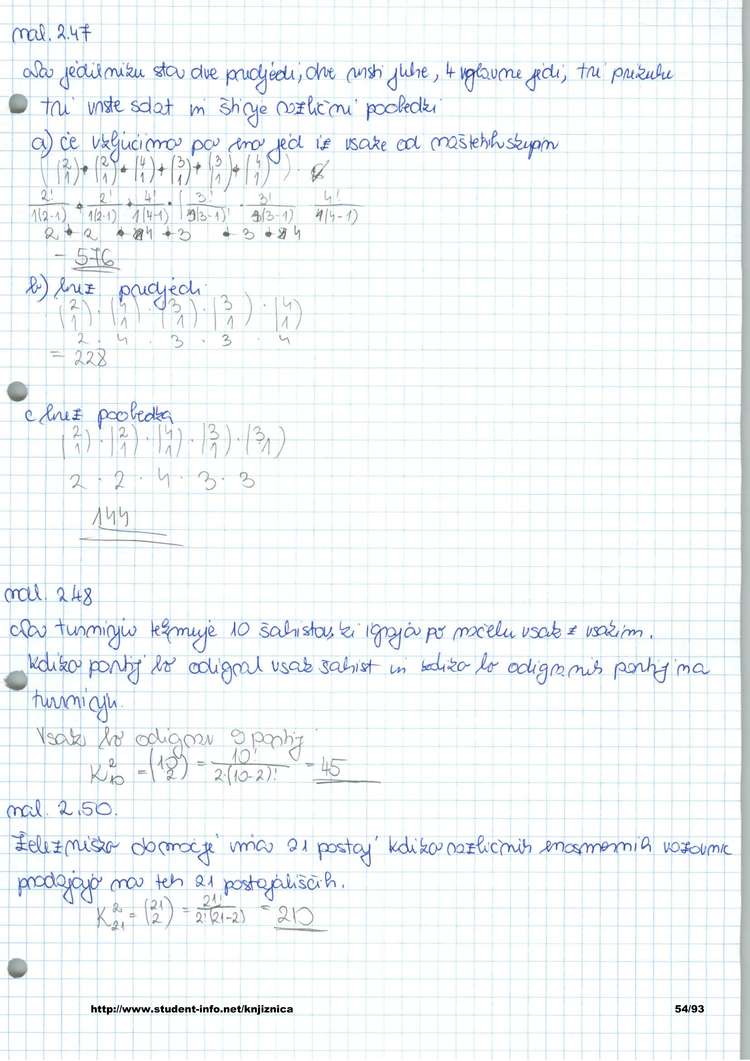 nal. 2.47
Na jedilniku sta dve predjedi, dve vrsti juhe, 4 glavne jedi, tri prikuhe
tri vrste solat in štirje različni poobedki
a) če vključimo po eno jed iz vsake od naštetih skupin
(2 1) · (2 1) · (4 1) · (3 1) · (3 1) · (4 1)
2!/1(2-1) · 2!/1(2-1) · 4!/1(4-1) · 3!/(3-1)! · 3!/(3-1) 4!/1(4-1)
2 · 2 · 4 · 3 · 3 · 4
= 576
b) brez predjedi
(2 1) · (4 1) · (3 1) · (3 1) · (4 1)
2 · 4 · 3 · 3 · 4
= 228
c brez poobedka
(2 1) · (2 1) · (4 1) · (3 1) · (3 1)
2 · 2 · 4 · 3 · 3
144
nal. 2.48
Na turnirju tekmuje 10 šahistov, ki igrajo po načelu vsak z vsakim.
koliko partij bo odigral vsak šahist in koliko bo odigranih partij na
turnirju.
Vsak bo odigrav 9 partij
K 2 10 = (10 2) = 10!/2·(10-2)! = 45
nal. 2.50.
Železniško območje ima 21 postaj koliko različnih enosmernih vozovnic
prodajajo na teh 21 postajališčih.
K 2 21 = (21 2) = 21!/2!(21-2) = 210
http://www.student-info.net/knjiznica
54/93